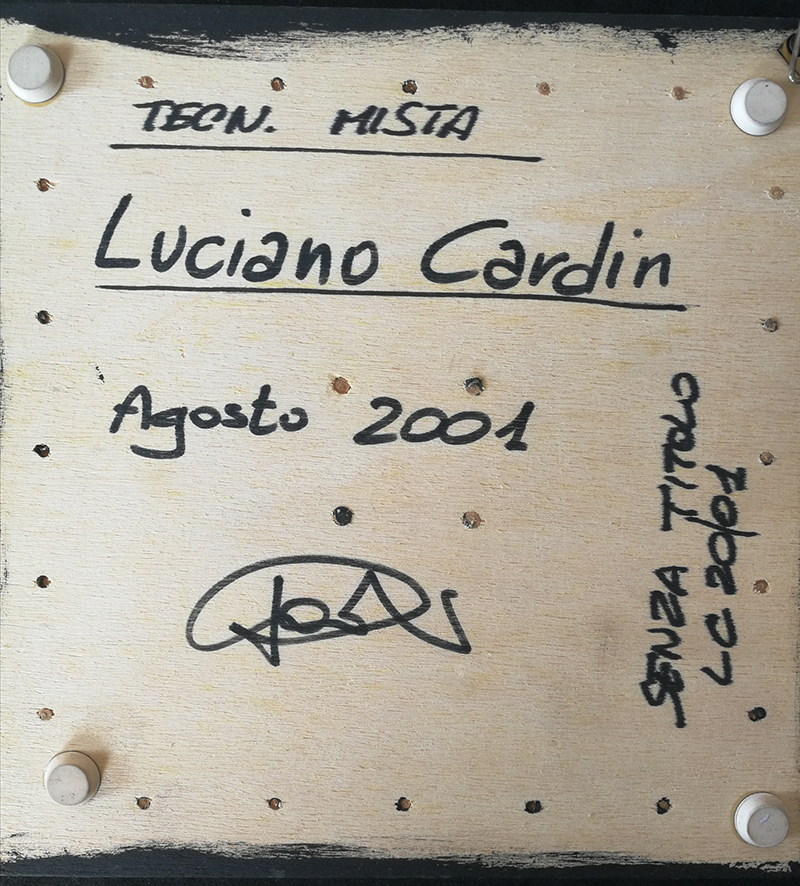 TECN. MISTA
Luciano Cardin
Agosto 2001
SENZA TITOLO
LC 20/01